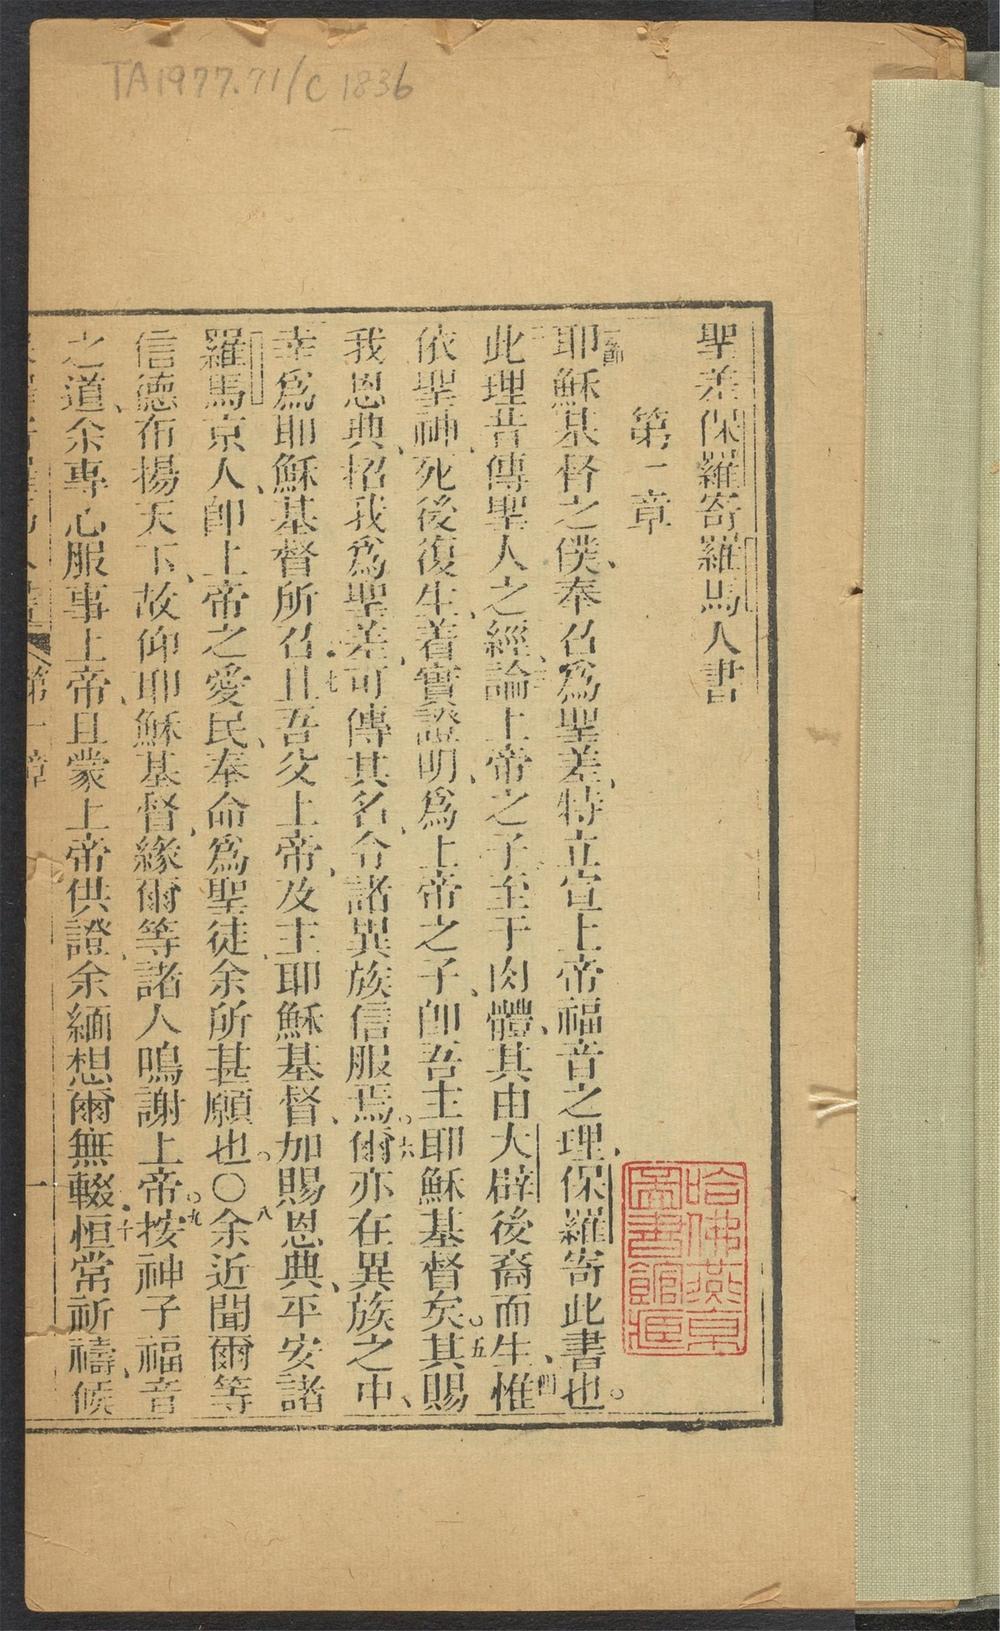 TA1977.71/C1836
聖差保羅寄羅馬人書
第一章
一節
耶穌基督之僕、奉召爲聖差、特立宣上帝福音之理、保羅寄此書也。
二此理昔傳聖人之經、三論上帝之子、至于肉體、其由大辟後裔而生、四惟
依聖神、死後復生、着實證明、爲上帝之子、卽吾主耶穌基督矣。五其賜
我恩典、招我爲聖差、可傳其名、令諸異族信服焉。六爾亦在異族之中、
幸爲耶穌基督所召。七且吾父上帝、及主耶穌基督、加賜恩典、平安諸
羅馬京人、卽上帝之愛民、奉命爲聖徒、余所甚願也。〇八余近聞爾等
信德布揚天下、故仰耶穌基督、緣爾等諸人鳴謝上帝。九按神子福音
之道、余專心服事上帝、且蒙上帝供證、余緬想爾無輟。十恒常祈禱、候
第一章
一
哈佛燕京
圖書館